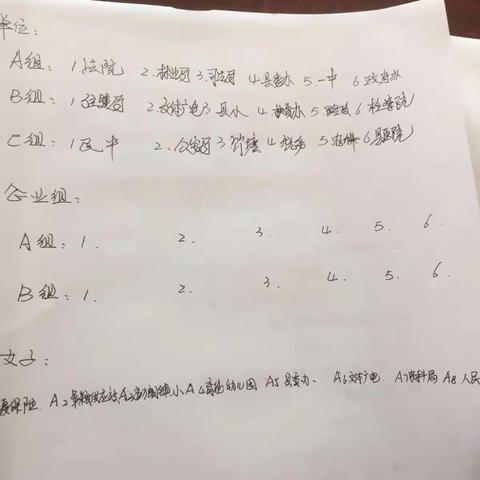 单位：
A组：1.法院 2.林业局 3.司法局 4.县委办 5.一中 6.政府办
B组：1.住建局 2.文体广电 3.县小 4. 5.财政 6.检察院
C组：1.民中 2.公安局 3.消防 4.税务 5. 6.县医院
企业组：
A组：1. 2. 3. 4. 5. 6.
B组：1. 2. 3. 4. 5. 6.
女子：
保险 A2 A3 镇小 A4 幼儿园 A5县委办、 A6文体广电 A7 局 A8人民